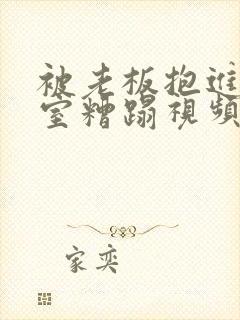 被老板抱进
室糟蹋视频
家奕